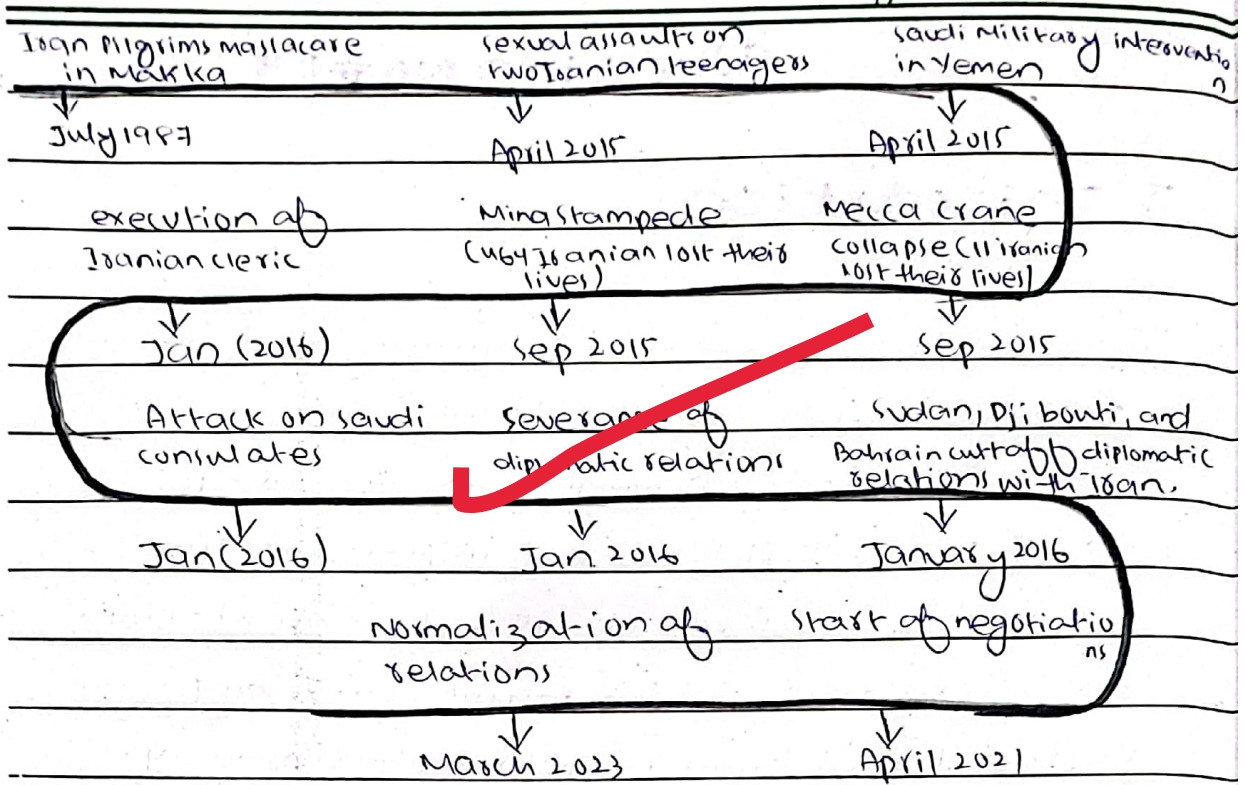 Iran Pilgrims maslacare
in Makka
sexual assault on
two Iranian teenagers
Saudi Military interventio
n
in Yemen
July 1987
April 2015
April 2015
execution of
Iranian cleric
Mina Stampede
(464 Iranian lost their
lives)
Mecca Crane
collapse (11 iranian
lost their lives)
Jan (2016)
Sep 2015
Sep 2015
Attack on saudi
consulates
severance of
diplomatic relations
Sudan, Djibouti, and
Bahrain cutt off diplomatic
relations with Iran.
Jan (2016)
Jan 2016
January 2016
Normalization of
relations
Start of negotiatio
ns
March 2023
April 2021